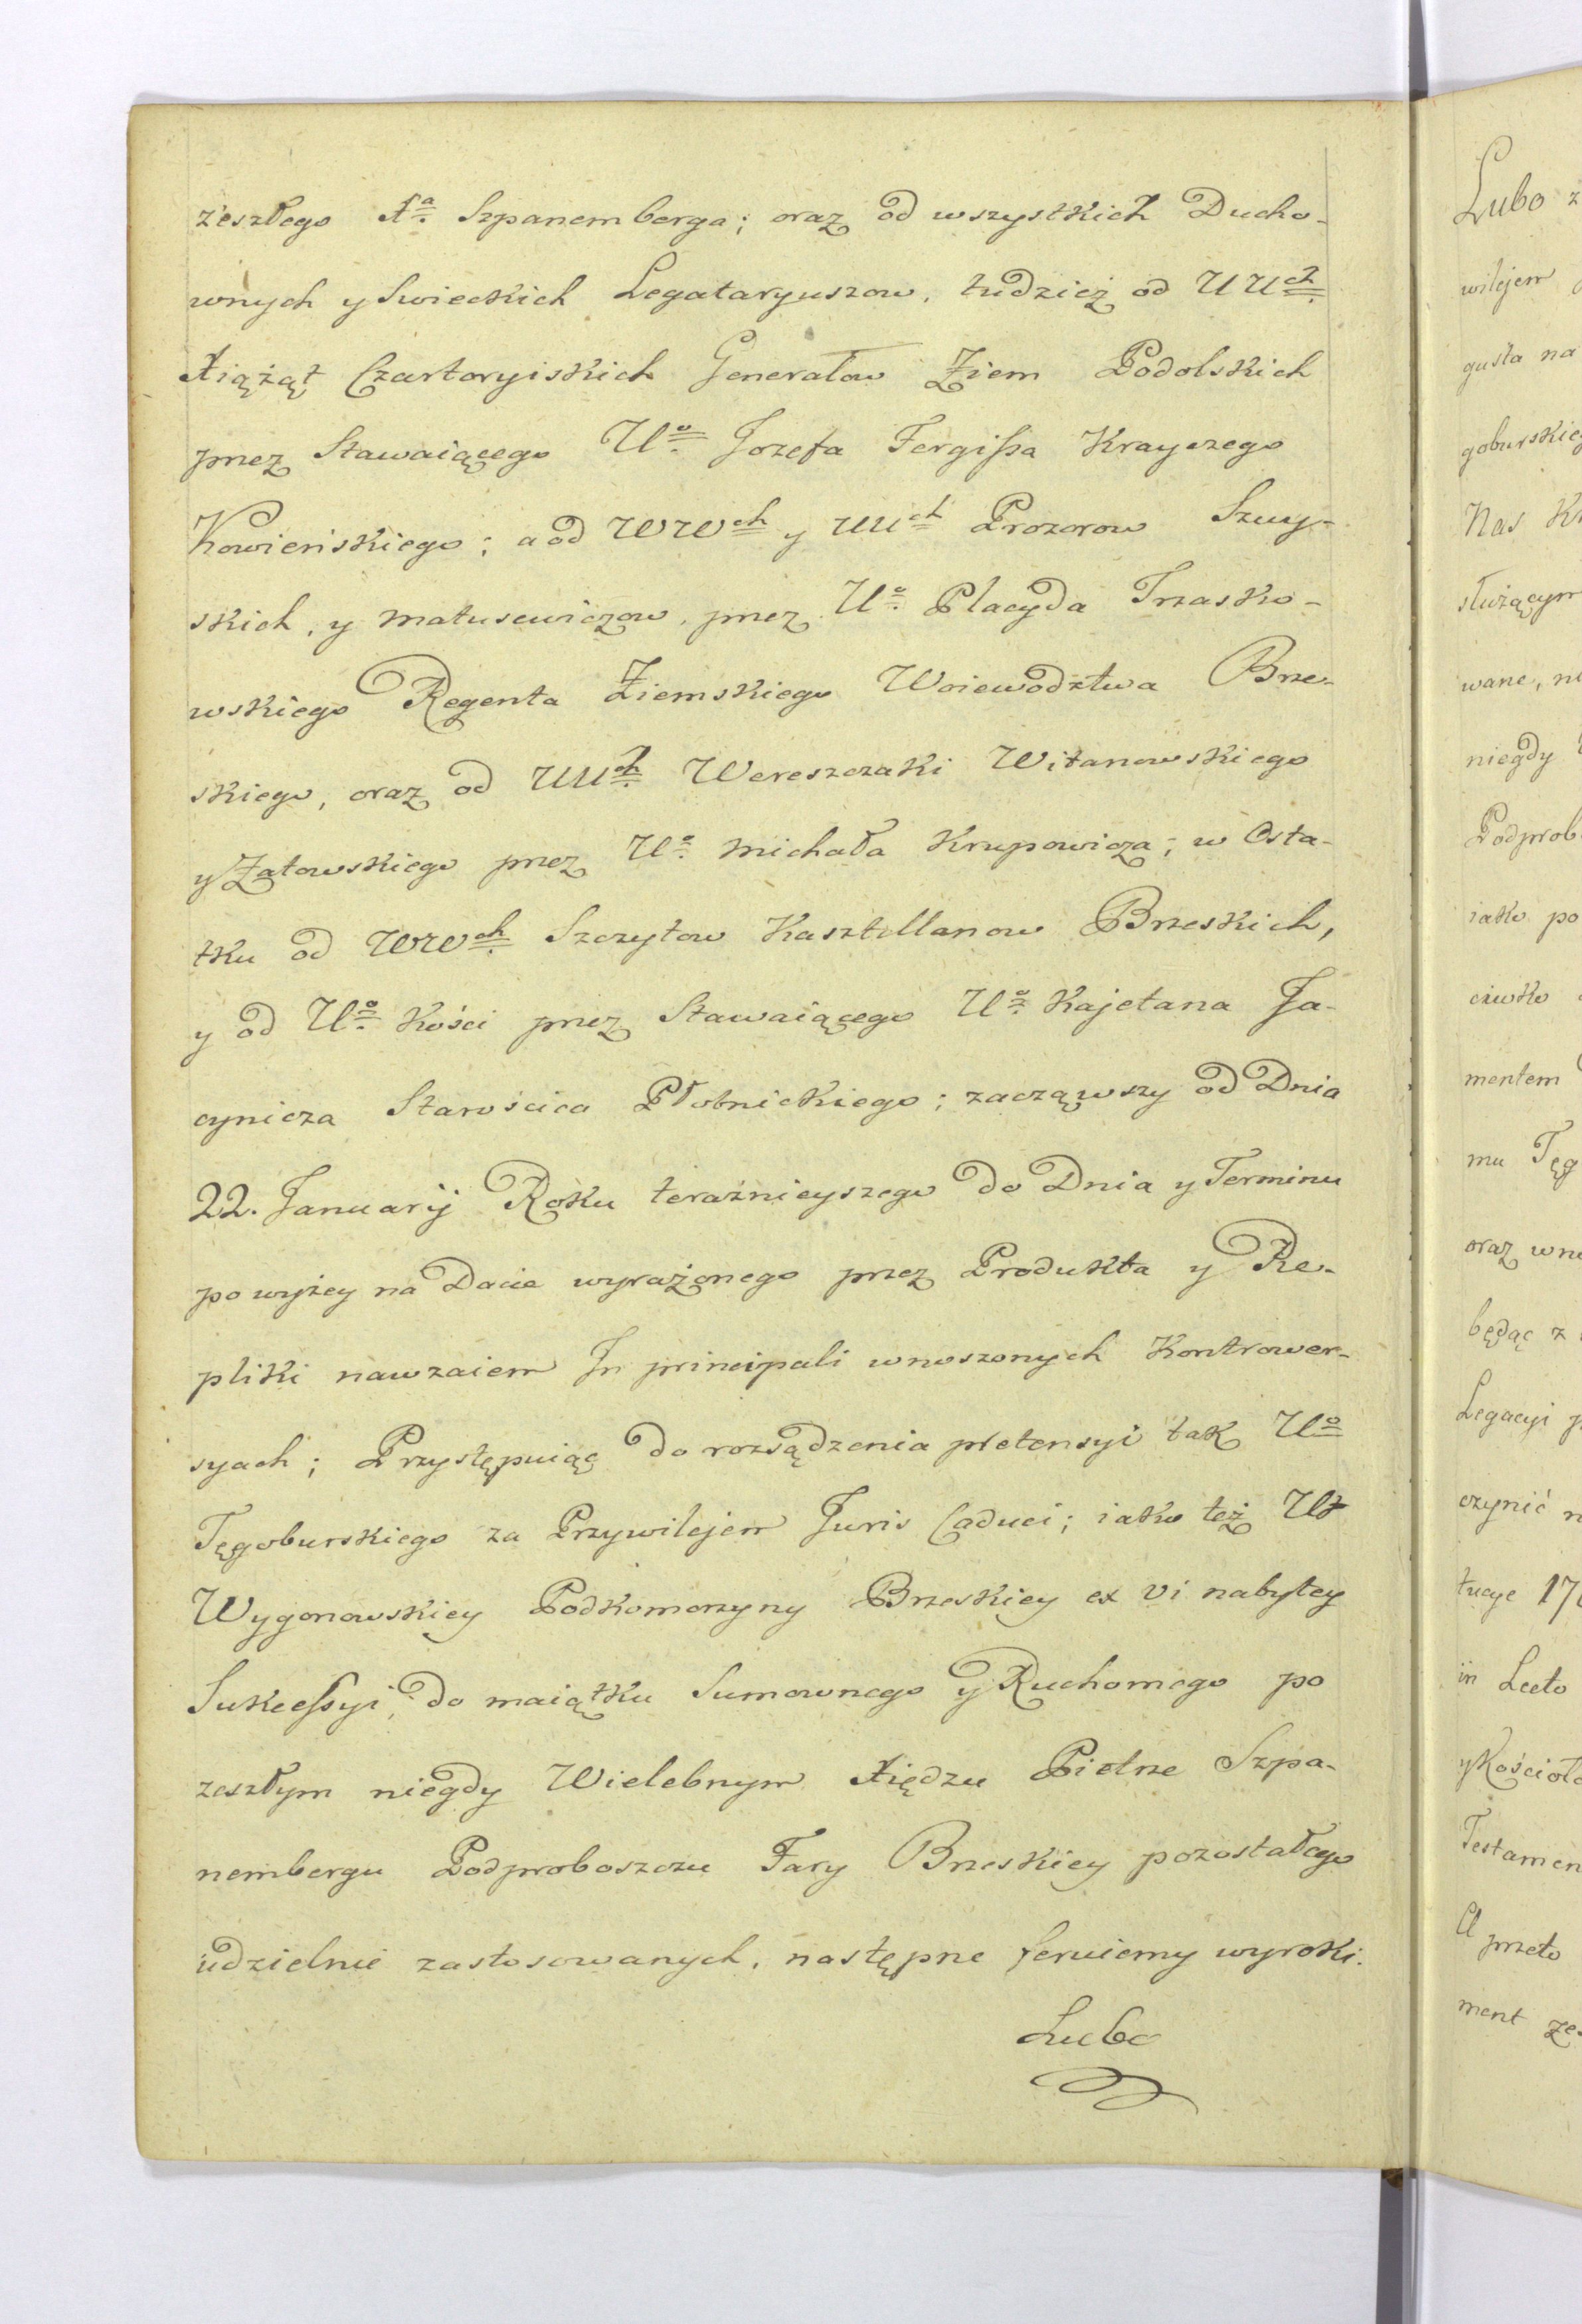 zeszłego Xa Szpanemberga; oraz od wszystkich Ducho-
wnych y Swieckich Legataryuszow, tudziez od UUch
Xiążąt Czartoryiskich Generałow Ziem Podolskich
przez Stawaiącego Uo Jozefa Fergissa Krayczego
Kowieńskiego; a od WWch y UUch Prozorow Szuy-
skich, y Matusewiczow, przez Uo Placyda Trzasko-
wskiego Regenta Ziemskiego Woiewodztwa Brze-
skiego, oraz od UUch Wereszczaki Witanowskiego
y Załowskiego przez Uo Michała Krupowicza; w Osta-
tku od WWch Szczytow Kasztellanow Brzeskich,
y od Uo Kości przez Stawaiącego Uo Kajetana Ja-
cynicza Starościca Płotnickiego; zacząwszy od Dnia
22. Januarij Roku teraźnieyszego do Dnia y Terminu
powyżey na Dacie wyrażonego przez Produkta y Re-
pliki nawzaiem In principali wnoszonych Kontrower-
syach; Przystępuiąc do rozsądzenia pretensyi tak Uo
Tęgoburskiego za Przywilejem Juris Caduci; iako też Ur
Wygonowskiey Podkomorzyny Brzeskiey ex vi nabytey
Sukcessyi, do maiątku Summownego y Ruchomego po
zeszłym niegdy Wielebnym Xiędzu Pietrze Szpa-
nembergu Podproboszczu Fary Brzeskiey pozostałego
udzielnie zastosowanych, następne feruiemy wyroki.
Lubo
Lubo z
wilejem
gusta na
goburskieg
Nas Kr
służącym
wane, ni
niegdy
Podprob
iako po
ciwko
mentem
mu Tęg
oraz wni
będąc z
Legacyi p
czynić n
tucye 17
in Lecto
y Kościoło
Testamen
A przeto
ment ze